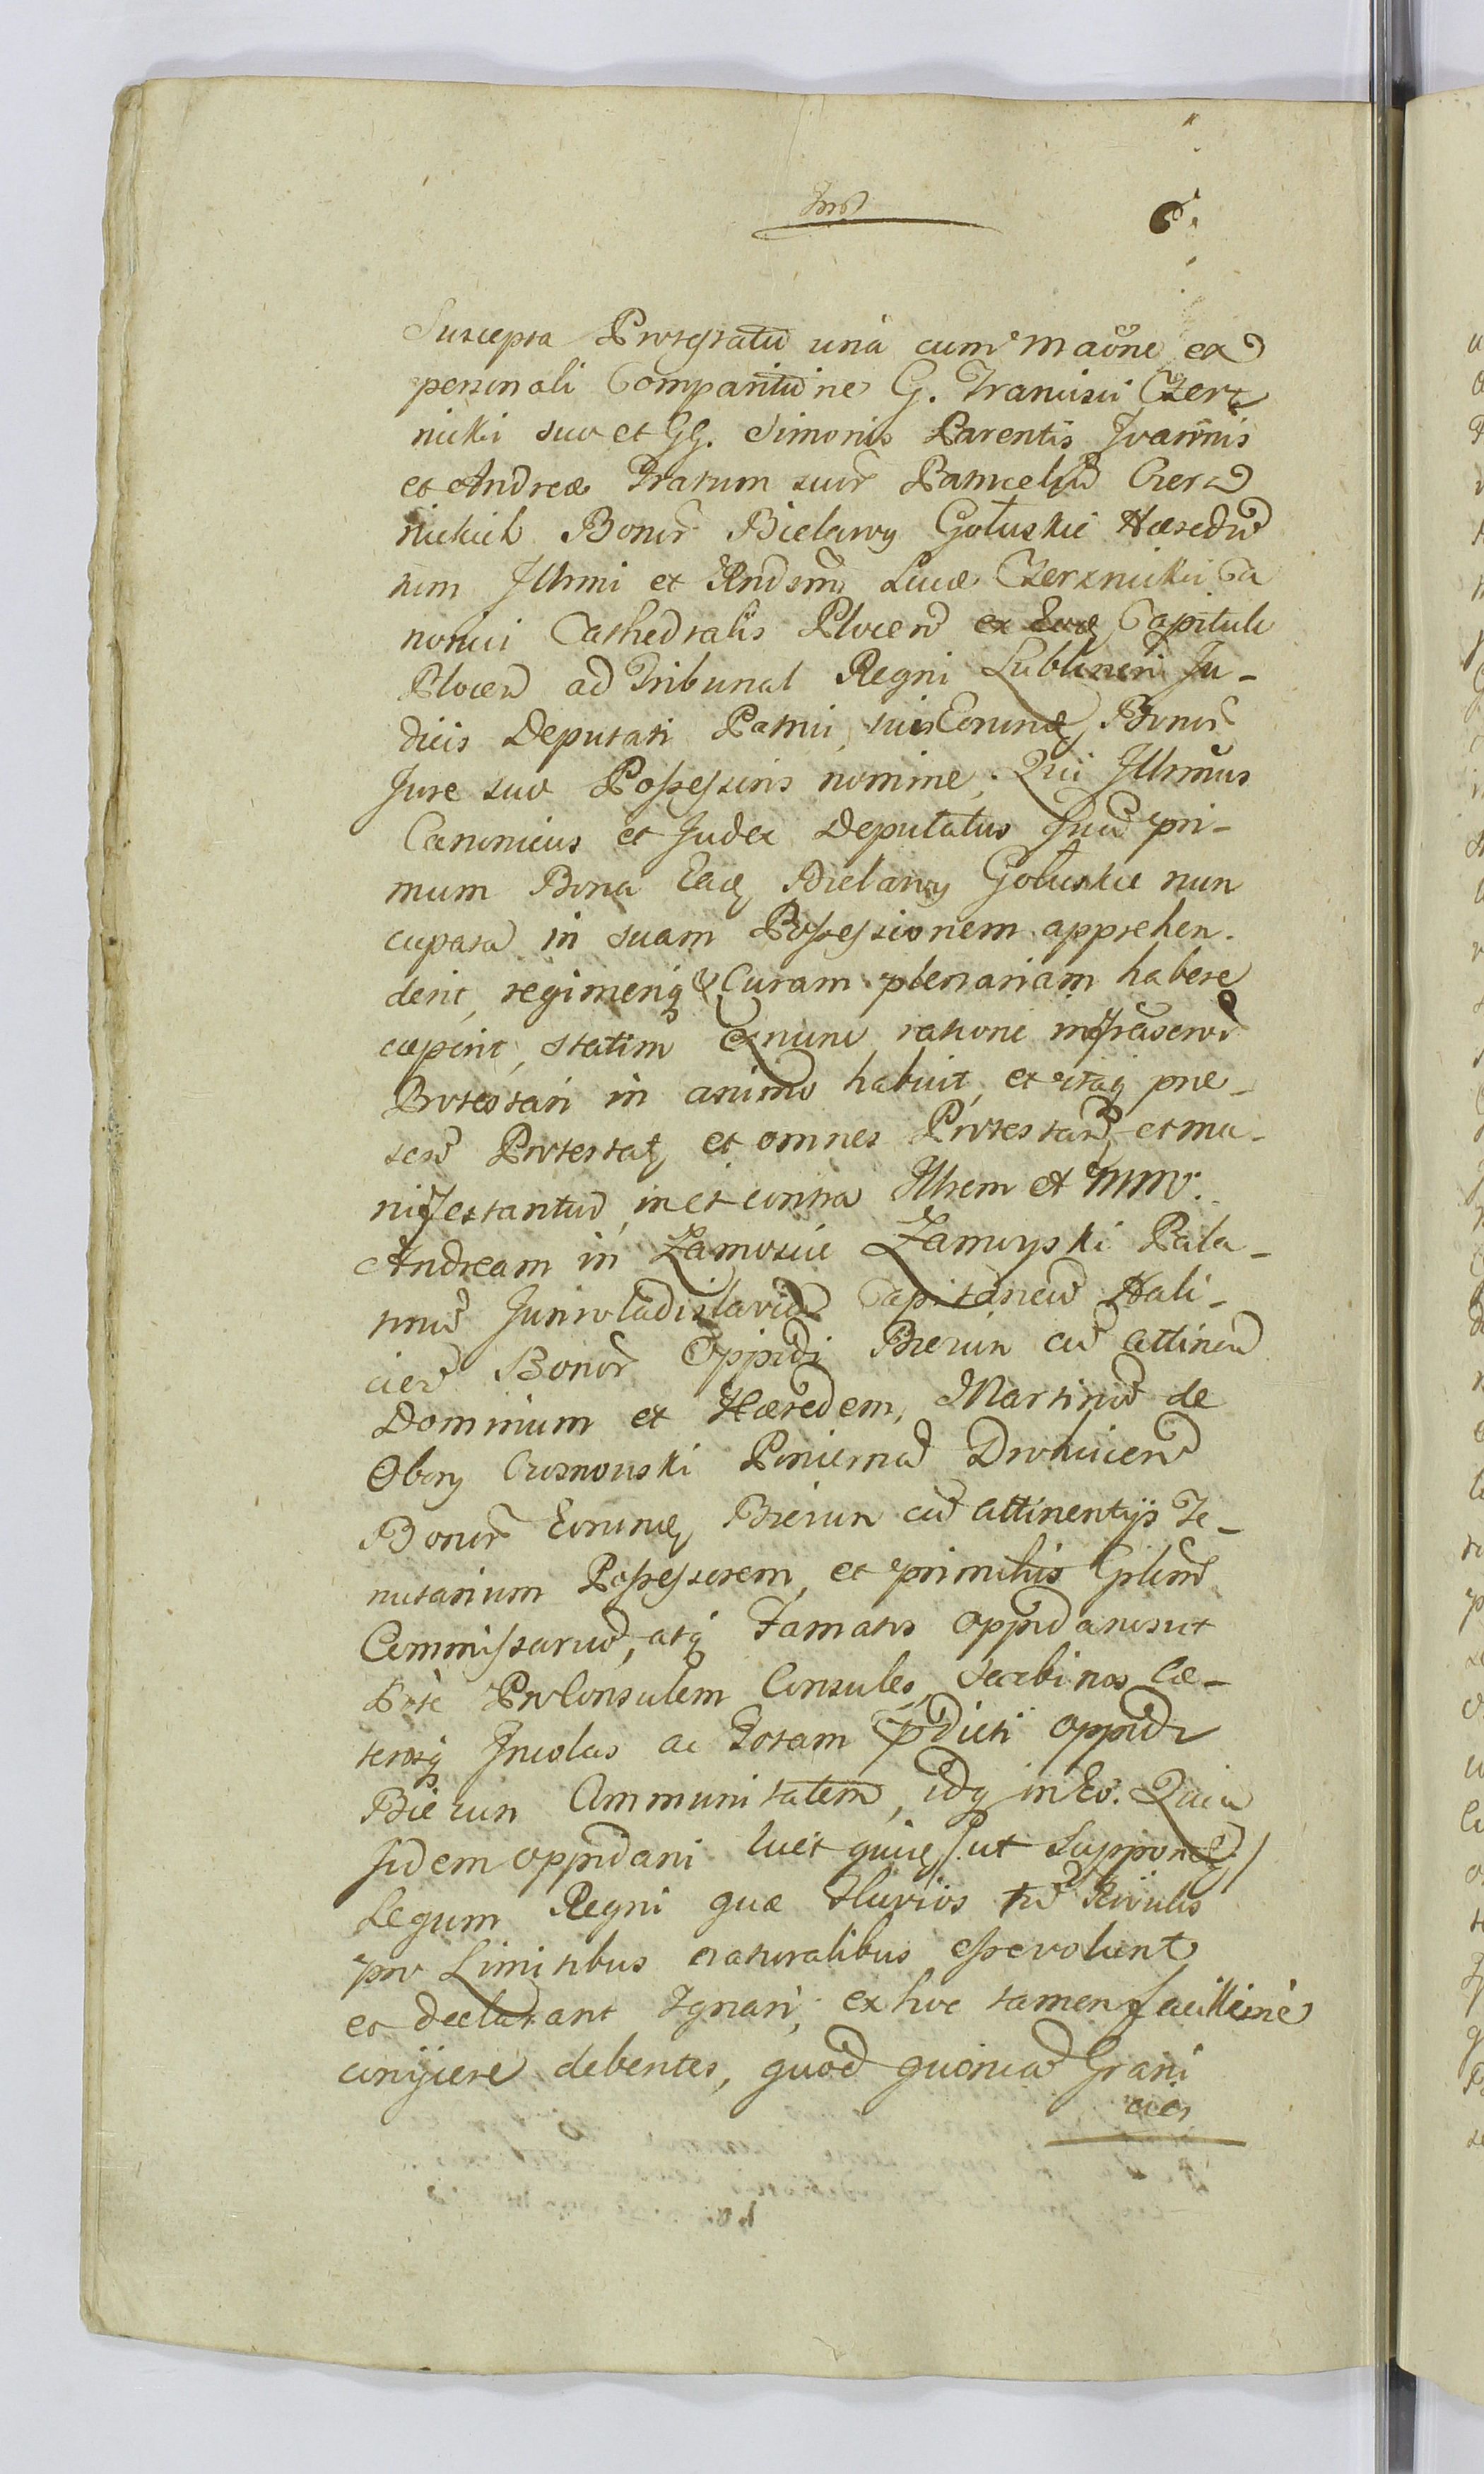 6.
Suscepta Protestatio unà cum maõne ex
personali Comparitione G. Francisci Czerz
nicki suo et GG. Simonis Parentis Joannis
et Andreæ Fratrum suor̃ Patruelium Czerz
nickich Bonor̃ Bielawy Gołuskie Hæredum
nem Illrmi et Rndsmi Lucæ Czerznicki Ca
nonici Cathedralis Plocen Capituli
Plocen ad Tribunal Regni Lublinen Ju-
dicis Deputati Patrui, suis Bonor̃
Jure suo Possessoris nomine; Qui Illrmus
Canonicus et Judex Deputatus pri-
mum Bona Bielawy Gołuskie nun
cupata in suam Possessionem apprehen-
derit, regimenq & Curam plenariam habere
cæperit, statim exnunc ratione infrascrõr
Protestari in animo habuit, et itaq præ-
sen Protestat et omnes Protestant et ma-
nifestantur, in et contra Illrem et MM.
Andream in Zamoscie Zamoyski Pala-
tinum Junivladislavien Capitaneum Hali-
cien Bonor̃ Oppidi Biezun cum attinen
Dominum et Hæredem, Martinum de
Obory Drohicien
Bonor̃ Biezun cum attinentijs Te-
nutarium Possessorem, et Gñlem
Commissarium, atq Famatos oppidanos ut
Pote ProConsulem Consules, Scabinos Cæ-
terosq Incolas ac Totam p̃dicti oppidi
Biezun Communitatem, idq in Eo. Quia
Iidem oppidani licet /ut supponit/
Legum Regni quæ Fluvios cum Rivulis
pro Limitibus naturalibus esse volunt
et declarant Ignari; ex hoc tamen facillimè
conijcere debentes, quod quoniam Grani
cies